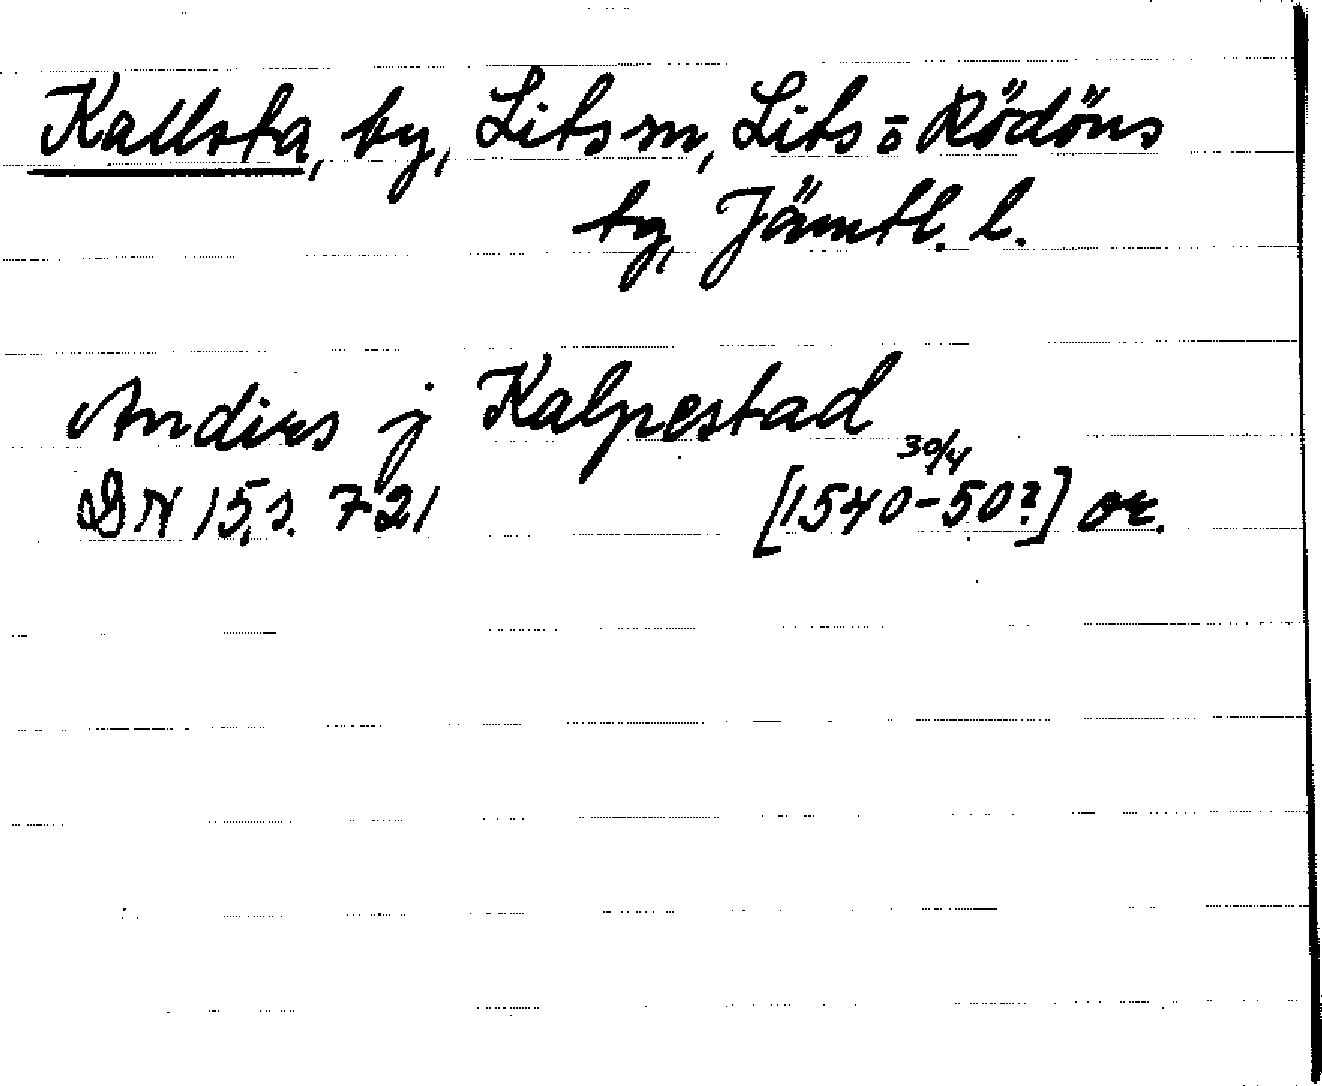 Kallsta, by, Lits sn, Lits o Rödöns
tg, Jämtl. l.
Anders j Kalpestad
30/4
DN 15, s. 721 [1540-50?] or.